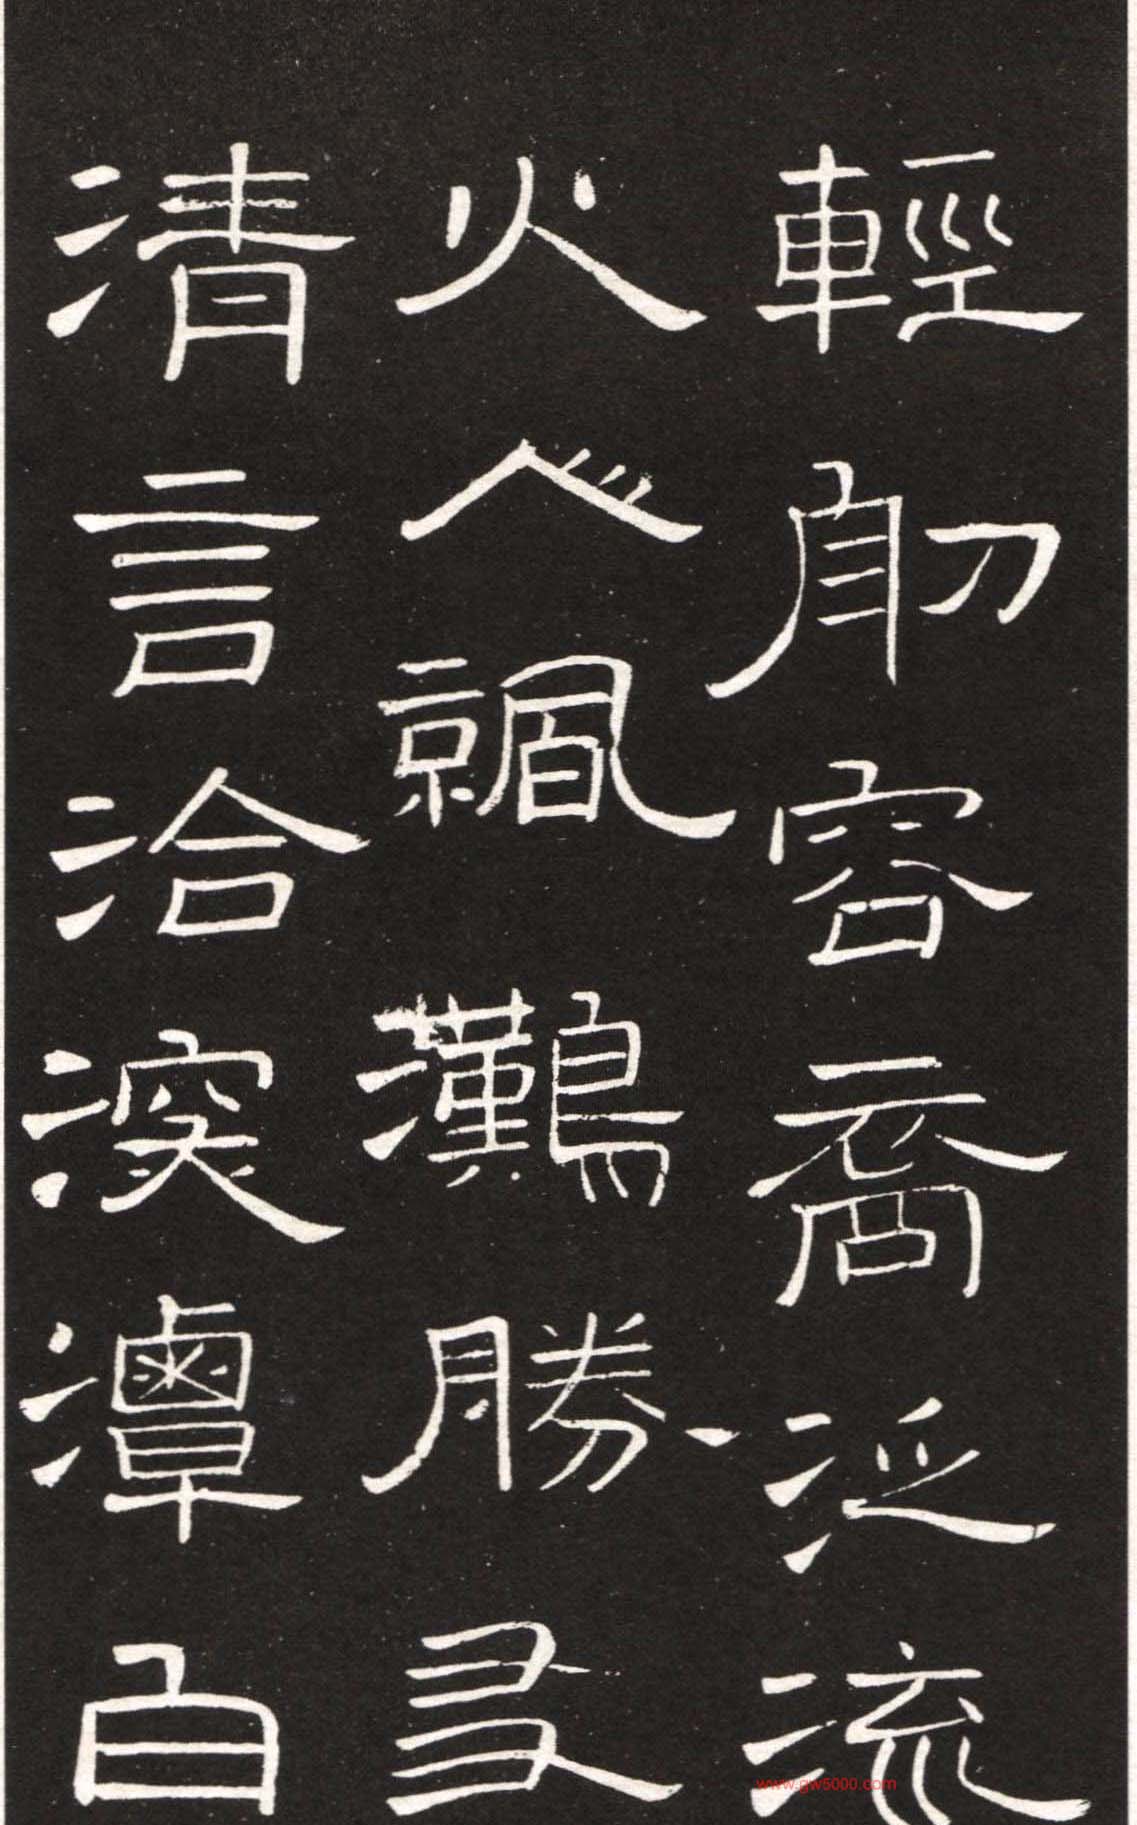 輕舠容裔泛流
火人灘勝
清言洽深潭白
www.gw5000.com